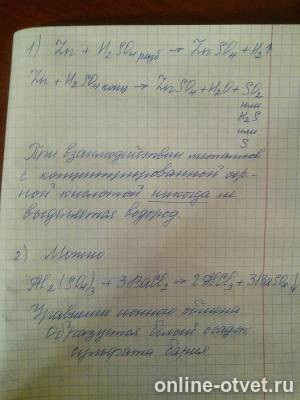 1) Zn + H₂SO₄ разб → ZnSO₄ + H₂↑
Zn + H₂SO₄ конц → ZnSO₄ + H₂O + SO₂
или
H₂S
или
S
При взаимодействии металлов
с концентрированной сер-
ной кислотой никогда не
выделяется водород
2) Можно
Al₂(SO₄)₃ + 3BaCl₂ → 2AlCl₃ + 3BaSO₄↓
Уравнение ионного обмена
Образуется белый осадок
сульфата бария
online-otvet.ru